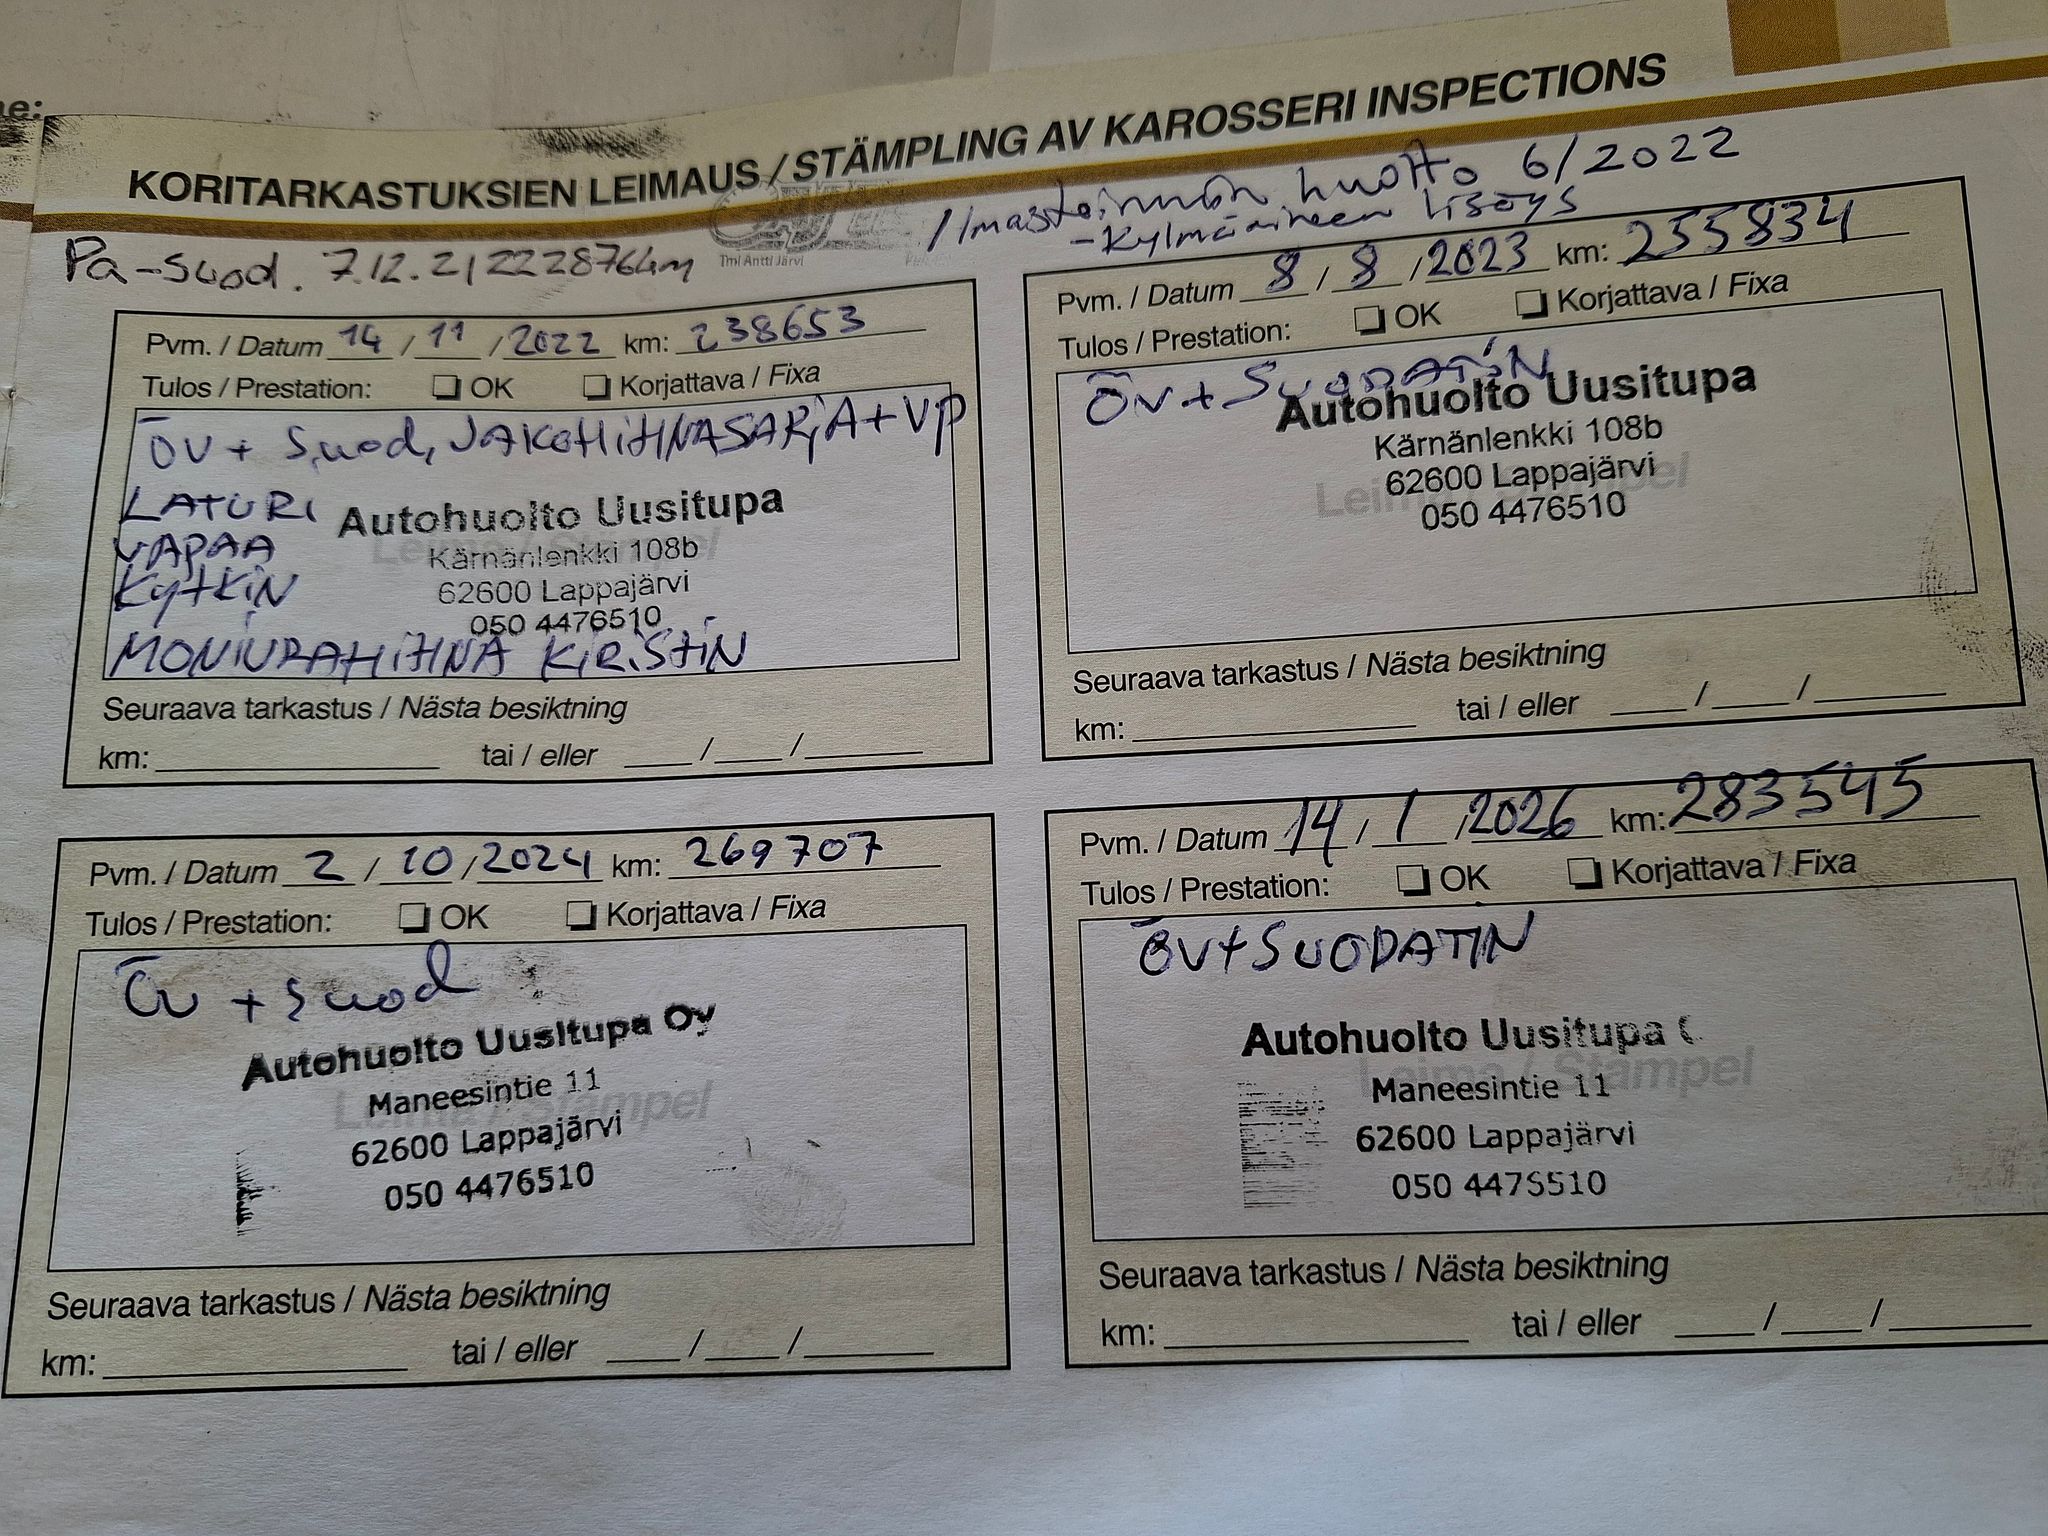 ne:
KORITARKASTUKSIEN LEIMAUS / STÄMPLING AV KAROSSERI INSPECTIONS
Tmi Antti Järvi
Ilmastoinnin huolto 6/2022
-Kylmäaineen lisäys
Pa-suod. 7.12.21 222876km
Pvm. / Datum 14 / 11 / 2022 km: 238653
Tulos / Prestation: OK Korjattava / Fixa
ÖV + Suod, JAKOHIHNASARJA + VP
LATURI
VAPAA
KYTKIN
MONIURAHIHNA KIRISTIN
Autohuolto Uusitupa
Leima / Stämpel
Kärnänlenkki 108b
62600 Lappajärvi
050 4476510
Seuraava tarkastus / Nästa besiktning
km: tai / eller / /
Pvm. / Datum 8 / 8 / 2023 km: 255834
Tulos / Prestation: OK Korjattava / Fixa
ÖV + SUODATIN
Autohuolto Uusitupa
Kärnänlenkki 108b
62600 Lappajärvi
Leima / Stämpel
050 4476510
Seuraava tarkastus / Nästa besiktning
km: tai / eller / /
Pvm. / Datum 2 / 10 / 2024 km: 269707
Tulos / Prestation: OK Korjattava / Fixa
ÖV + Suod
Autohuolto Uusitupa Oy
Maneesintie 11
Leima / Stämpel
62600 Lappajärvi
050 4476510
Seuraava tarkastus / Nästa besiktning
km: tai / eller / /
Pvm. / Datum 14 / 1 / 2026 km: 283545
Tulos / Prestation: OK Korjattava / Fixa
ÖV + SUODATIN
Autohuolto Uusitupa
Leima / Stämpel
Maneesintie 11
62600 Lappajärvi
050 4476510
Seuraava tarkastus / Nästa besiktning
km: tai / eller / /